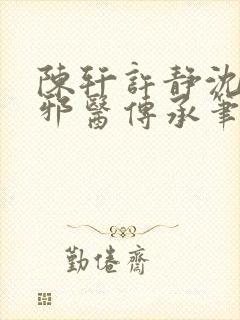 陳轩許靜沈
邪醫傳承筆
勤倦齋